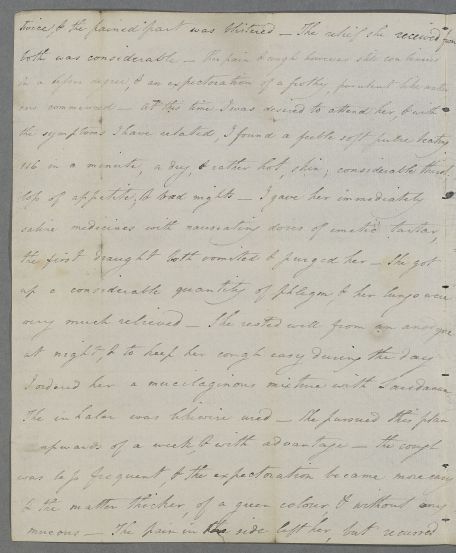 twice, & the pained part was blistered — The relief she received from
both was considerable — The pain & cough however still continued
in a lesser degree, & an expectoration of a frothy, purulent like
commenced — At this time I was desired to attend her, & with
the symptoms I have related, I found a feeble soft pulse beating
116 in a minute, a dry, & rather hot, skin; considerable thirst
loss of appetite, & bad nights — I gave her immediately
saline medicines with nauseating doses of emetic tartar,
the first draught both vomited & purged her — She got
up a considerable quantity of phlegm, & her lungs were
very much relieved — She rested well from an anodyne
at night, & to keep her cough easy during the day
I ordered her a mucilaginous mixture with Laudanum
The inhaler was likewise used — She pursued this plan
upwards of a week, & with advantage — the cough
was less frequent, & the expectoration became more easy
& the matter thicker, of a green colour, & without any
mucous — The pain in the side left her, but recurred